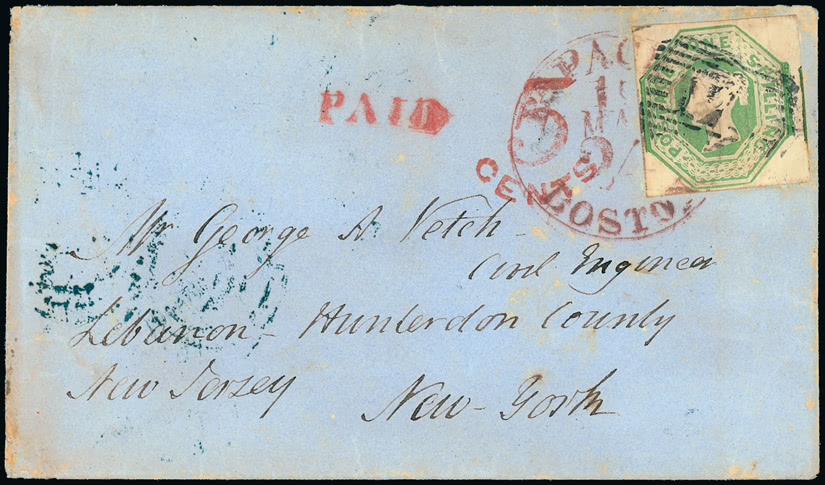 PAID
5
CENTS
BOSTO
Mr George A. Vetch
Civil Engineer
Lebanon - Hunterdon County
New Jersey
New-York